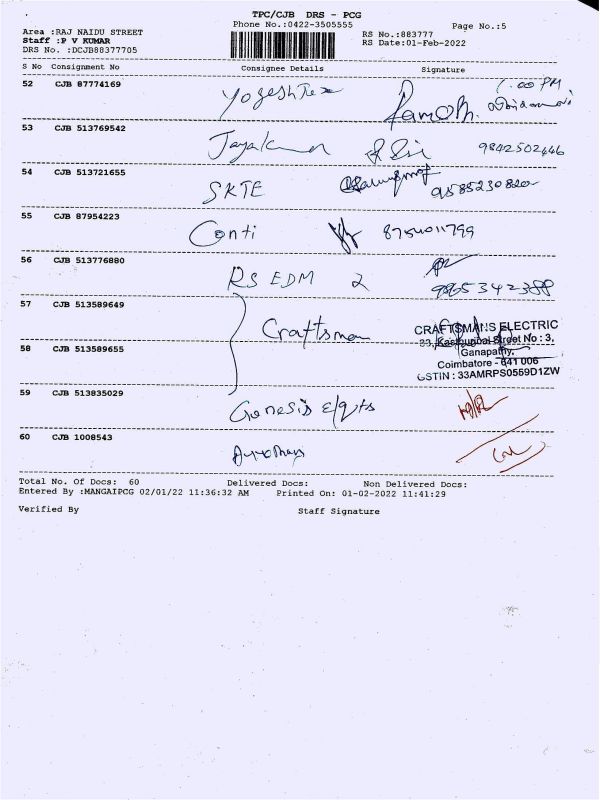 TPC/CJB DRS - PCG
Phone No.:0422-3505555
Page No.:5
Area :RAJ NAIDU STREET
Staff :P V KUMAR
DRS No. :DCJB88377705
RS No.:883777
RS Date:01-Feb-2022
S No Consignment No Consignee Details Signature
52 CJB 87774169 Yogesh Tex 1.00 PM
53 CJB 513769542 Jayakumar 9842502446
54 CJB 513721655 SKTE 9585230820
55 CJB 87954223 Conti 8754011799
56 CJB 513776880 RS EDM 2
57 CJB 513589649 Craftsman
CRAFTSMANS ELECTRIC
Street No : 3,
58 CJB 513589655 Ganapathy,
Coimbatore - 641 006
GSTIN : 33AMRPS0559D1ZW
59 CJB 513835029 Genesis
60 CJB 1008543
Total No. Of Docs: 60 Delivered Docs: Non Delivered Docs:
Entered By :MANGAIPCG 02/01/22 11:36:32 AM Printed On: 01-02-2022 11:41:29
Verified By Staff Signature